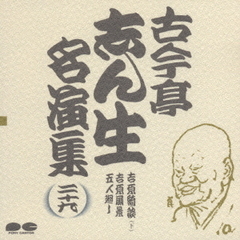 古今亭
志ん生
名演集
吉原綺談（下）
吉原風景
五人廻し
PONY CANYON